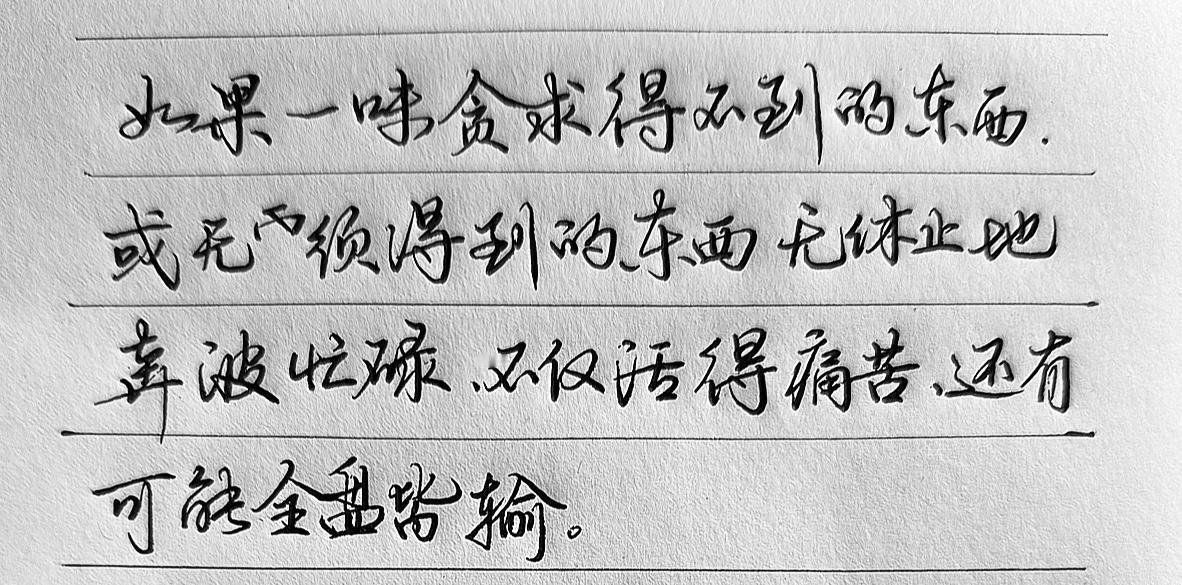 如果一味贪求得不到的东西.
或无须得到的东西无休止地
奔波忙碌、不仅活得痛苦、还有
可能全盘皆输。